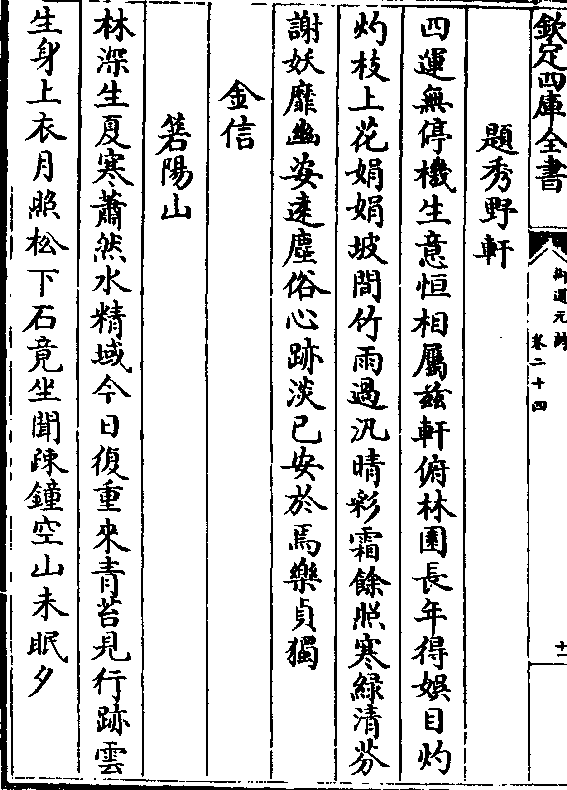 欽定四庫全書
御選元詩
卷二十四
十一
題秀野軒
四運無停機生意恒相屬兹軒俯林園長年得娯目灼
灼枝上花娟娟坡間竹雨過汎晴彩霜餘照寒緑清芬
謝妖靡幽姿逺塵俗心跡淡已安於焉樂貞獨
金信
箬陽山
林深生夏寒蕭然水精域今日復重來青苔見行跡雲
生身上衣月照松下石竟坐聞疎鐘空山未眠夕